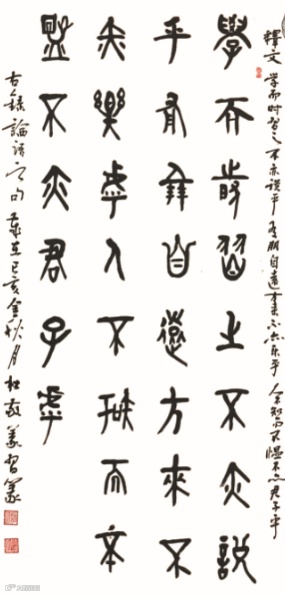 釋文 学而时習之不亦説乎有朋自遠方来不亦乐乎人不知而不愠不亦君子乎
學而時習之不亦說
乎有朋自遠方來不
亦樂虖人不知而不
愠不亦君子虖
古錄論語句 歲在己亥金秋月杜